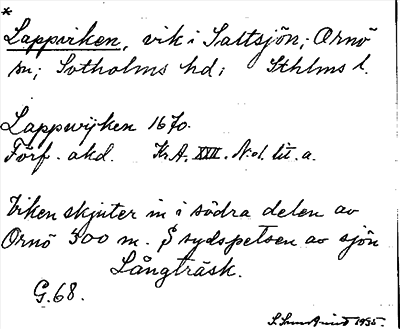 *
Lappviken, vik i Saltsjön; Ornö
sn; Sotholms hd; Sthlms l.
Lappwijken 1670.
Förf. akd. K.A. XXII. N:o 1. lit. a.
Viken skjuter in i södra delen av
Ornö 300 m. S sydspetsen av sjön
Långträsk.
G.68.
1935.